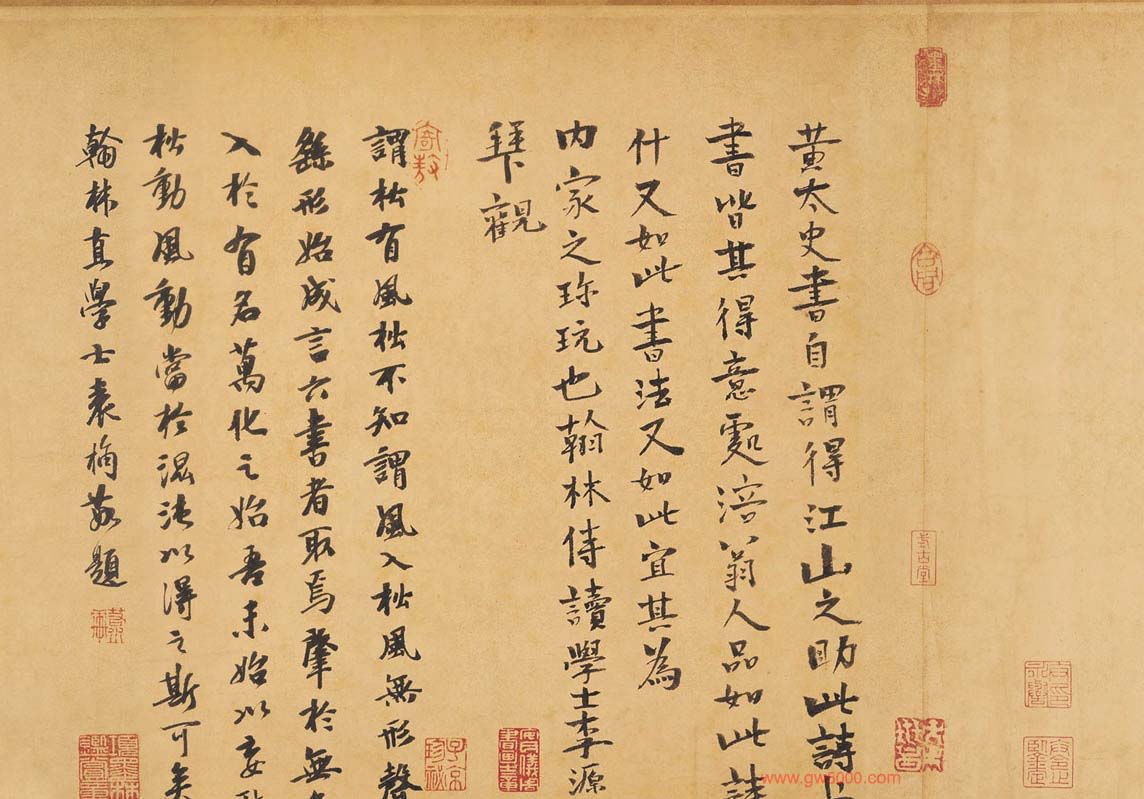 黃太史書自謂得江山之助此詩
書皆其得意處涪翁人品如此詩
什又如此書法又如此宜其為
內家之珎玩也翰林侍讀學士李源
拜觀
謂松有風松不知謂風入松風無形聲
繇形始成言六書者取焉肇於無
入於有名萬化之始吾未始以妄
松動風動當於混沌以得之斯可矣
翰林直學士袁桷敬題
考古堂
子京珍祕
www.gw5000.com